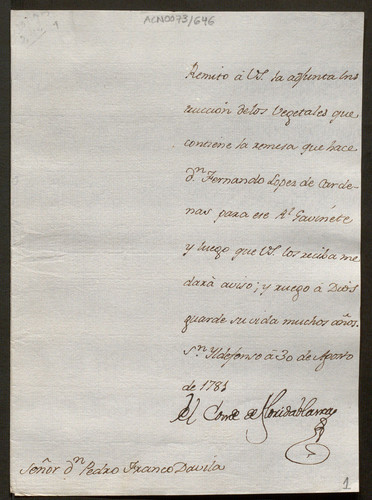 ACN0073/646
Remito à VS. la adjunta Ins
truccion delos Vegetales que
contiene la remesa que hace
Dn. Fernando Lopez de Carde-
nas para ese Rl. Gavinete
y luego que VS. los reciba me
darà aviso; y ruego à Dios
guarde su vida muchos años.
Sn. Yldefonso à 30 de Agosto
de 1781
El Conde de Floridablanca
Señor Dn. Pedro Franco Davila
1